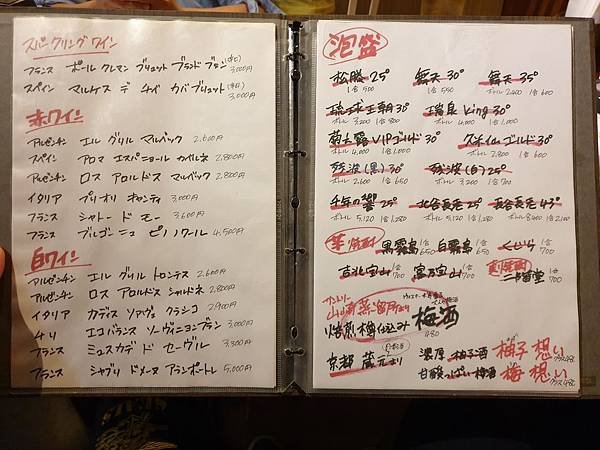 スパークリングワイン
フランス ポール クレマン ブリュット ブランド ブラン (辛口) 3,000円
スペイン マルケス デ カバ ブリュット (辛口) 3,000円
赤ワイン
アルゼンチン エル グリル マルベック 2,600円
スペイン アロマ エスパニョール カベルネ 2,800円
アルゼンチン ロス アロルドス マルベック 2,800円
イタリア プリオリ キャンティ 3,000円
フランス シャトー ド モー 3,600円
フランス ブルゴーニュ ピノノワール 4,500円
白ワイン
アルゼンチン エル グリル トロンテス 2,600円
アルゼンチン ロス アロルドス シャルドネ 2,800円
イタリア カディス ソアヴェ クラシコ 2,900円
チリ エコバランス ソーヴィニヨンブラン 3,000円
フランス ミュスカデ ド セーヴル 3,300円
フランス シャブリ ドメーヌ アランポートレ 5,000円
泡盛
松藤 25° 舞天 30° 舞天 35°
1合 500 ボトル 2,400 1合 600
琉球王朝 30° 瑞泉 King 30°
ボトル 3,200 1合 800 ボトル 4,000 1合 1,000
菊之露 VIPゴールド 30° 久米仙ゴールド 30°
ボトル 4,000 1合 1,000 ボトル 2,800 1合 600
残波(黒) 30° 残波(白) 25°
ボトル 2,600 1合 650 ボトル 3,200 1合 700
千年の響 25° 北谷長老 25° 北谷長老 43°
ボトル 5,120 1合 1,280 ボトル 5,120 1合 1,280 ボトル 8,400 1合 2,100
芋焼酎 黒霧島 1合 650 白霧島 1合 650 くじら 1合 700
吉兆宝山 1合 700 富乃宝山 1合 700 麦焼酎 二階堂 1合 700
サントリー 山崎蒸留所より
焙煎樽仕込み 梅酒
480
京都 蔵元より 濃厚 柚子酒 柚子想い グラス480
甘酸っぱい梅酒 梅想い グラス480